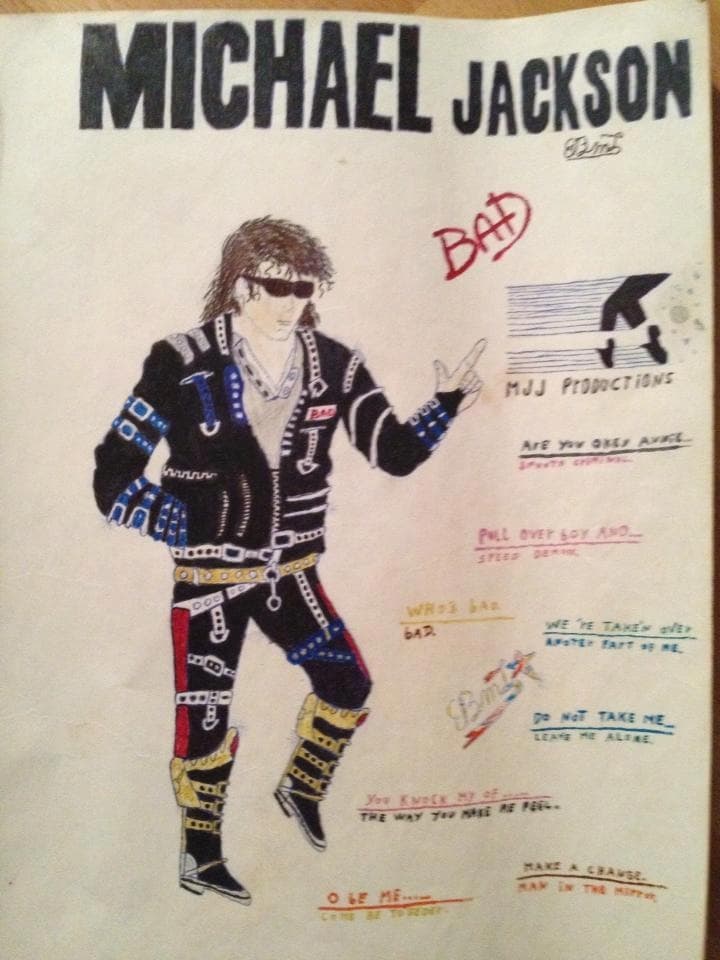 MICHAEL JACKSON
BmJ
BAD
MJJ PRODUCTIONS
BAD
ARE YOU OKEY ANNIE...
SMOOTH CRIMINAL.
PULL OVER BOY AND...
SPEED DEMON.
WHO'S BAD
BAD.
WE'RE TAKE'N OVER
ANOTER PART OF ME.
BmJ
DO NOT TAKE ME...
LEAVE ME ALONE.
YOU KNOCK MY OF.....
THE WAY YOU MAKE ME FEEL.
MAKE A CHANGE.
MAN IN THE MIRROR
O BE ME.....
COME BE TOGEDER.